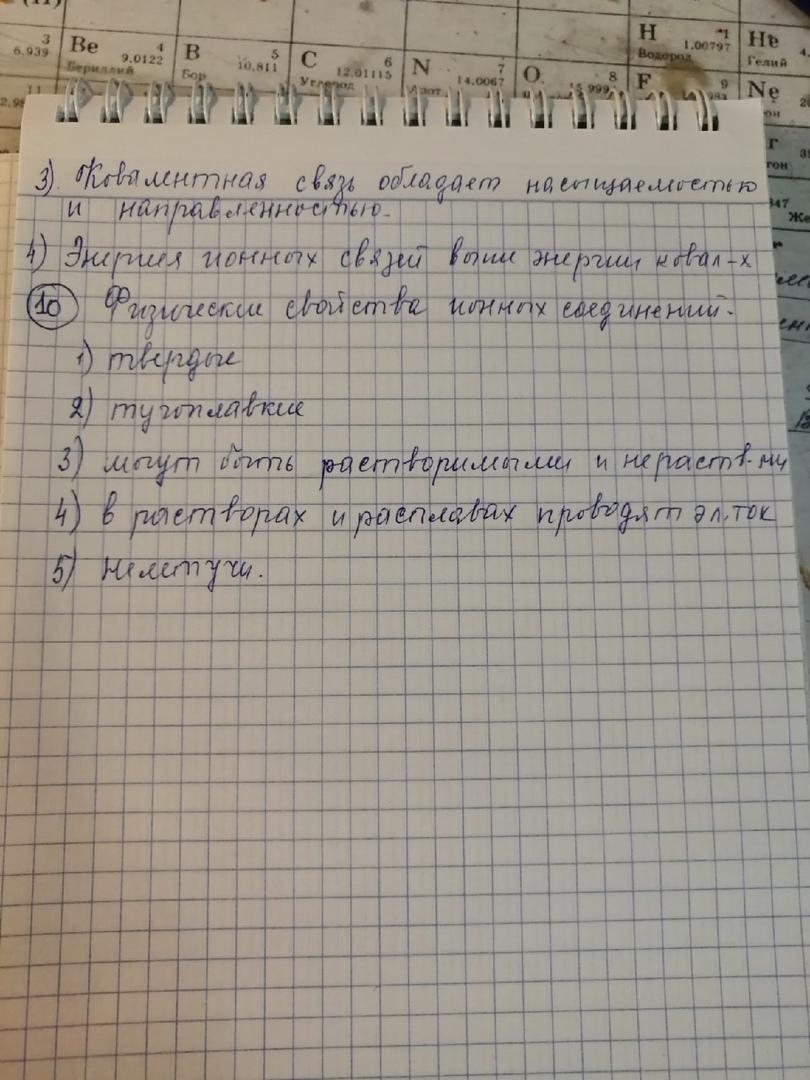 H 1
1,00797
Водород
He
4.
Гелий
3
6,939
Be 4
9,0122
Бериллий
B 5
10,811
Бор
C 6
12,01115
Углерод
N 7
14,0067
Азот
O 8
15,999
F 9
Ne
3). Ковалентная связь обладает насыщаемостью
и направленностью.
4) Энергия ионных связей выше энергии ковал-х
10 Физические свойства ионных соединений.
1) твердые
2) тугоплавкие
3) могут быть растворимыми и нераств-ми
4) в растворах и расплавах проводят эл. ток
5) нелетучи.